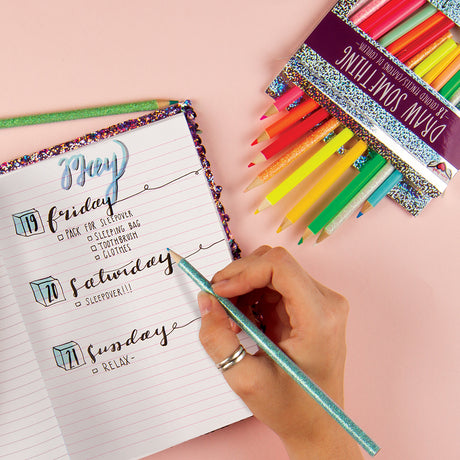 May
19 friday
PACK FOR SLEEPOVER
SLEEPING BAG
TOOTHBRUSH
CLOTHES
20 Saturday
SLEEPOVER!!!
21 Sunday
RELAX~
DRAW SOMETHING
18 COLORED PENCILS/CRAYONS DE COULEUR